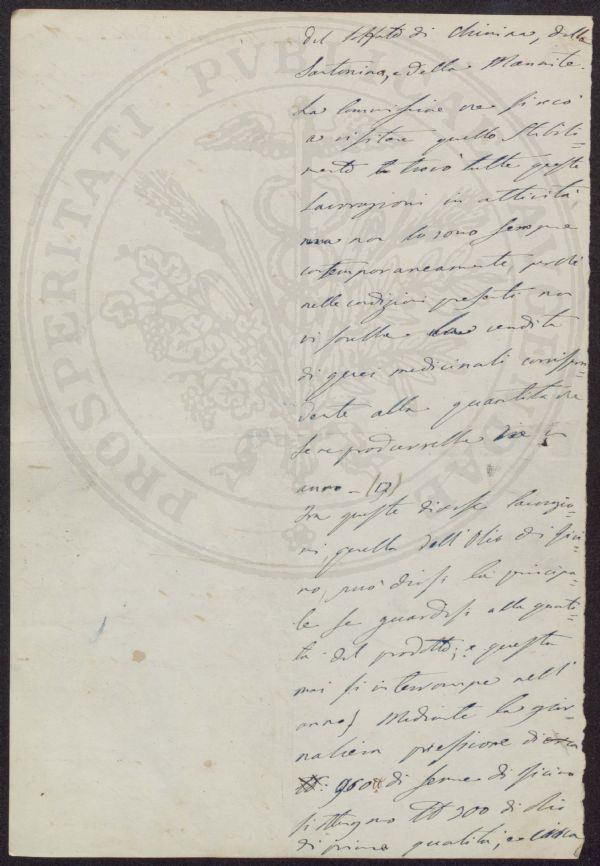 del solfato di chinina, della
Santonina, e della Mannite.
La Commissione che si recò
a visitare quello Stabili=
mento trovò tutte queste
lavorazioni in attività,
ma non lo sono sempre
contemporaneamente, perchè
nelle condizioni presenti non
vi sarebbe vendita
di quei medicinali corrispon=
dente alla quantità che
se ne produrrebbe in
anno - (17)
Fra queste diverse lavorazio=
ni, quella dell'Olio di Rici=
no, può dirsi la principa=
le se guardisi alla quanti=
tà del prodotto; e questa
mai si interrompe nell'
anno} Mediante la gior=
naliera pressione di
960 di seme di ricino
si ottengono 300 di olio
di prima qualità, e circa
PROSPERITATI PVBLICAE AVGENDAE